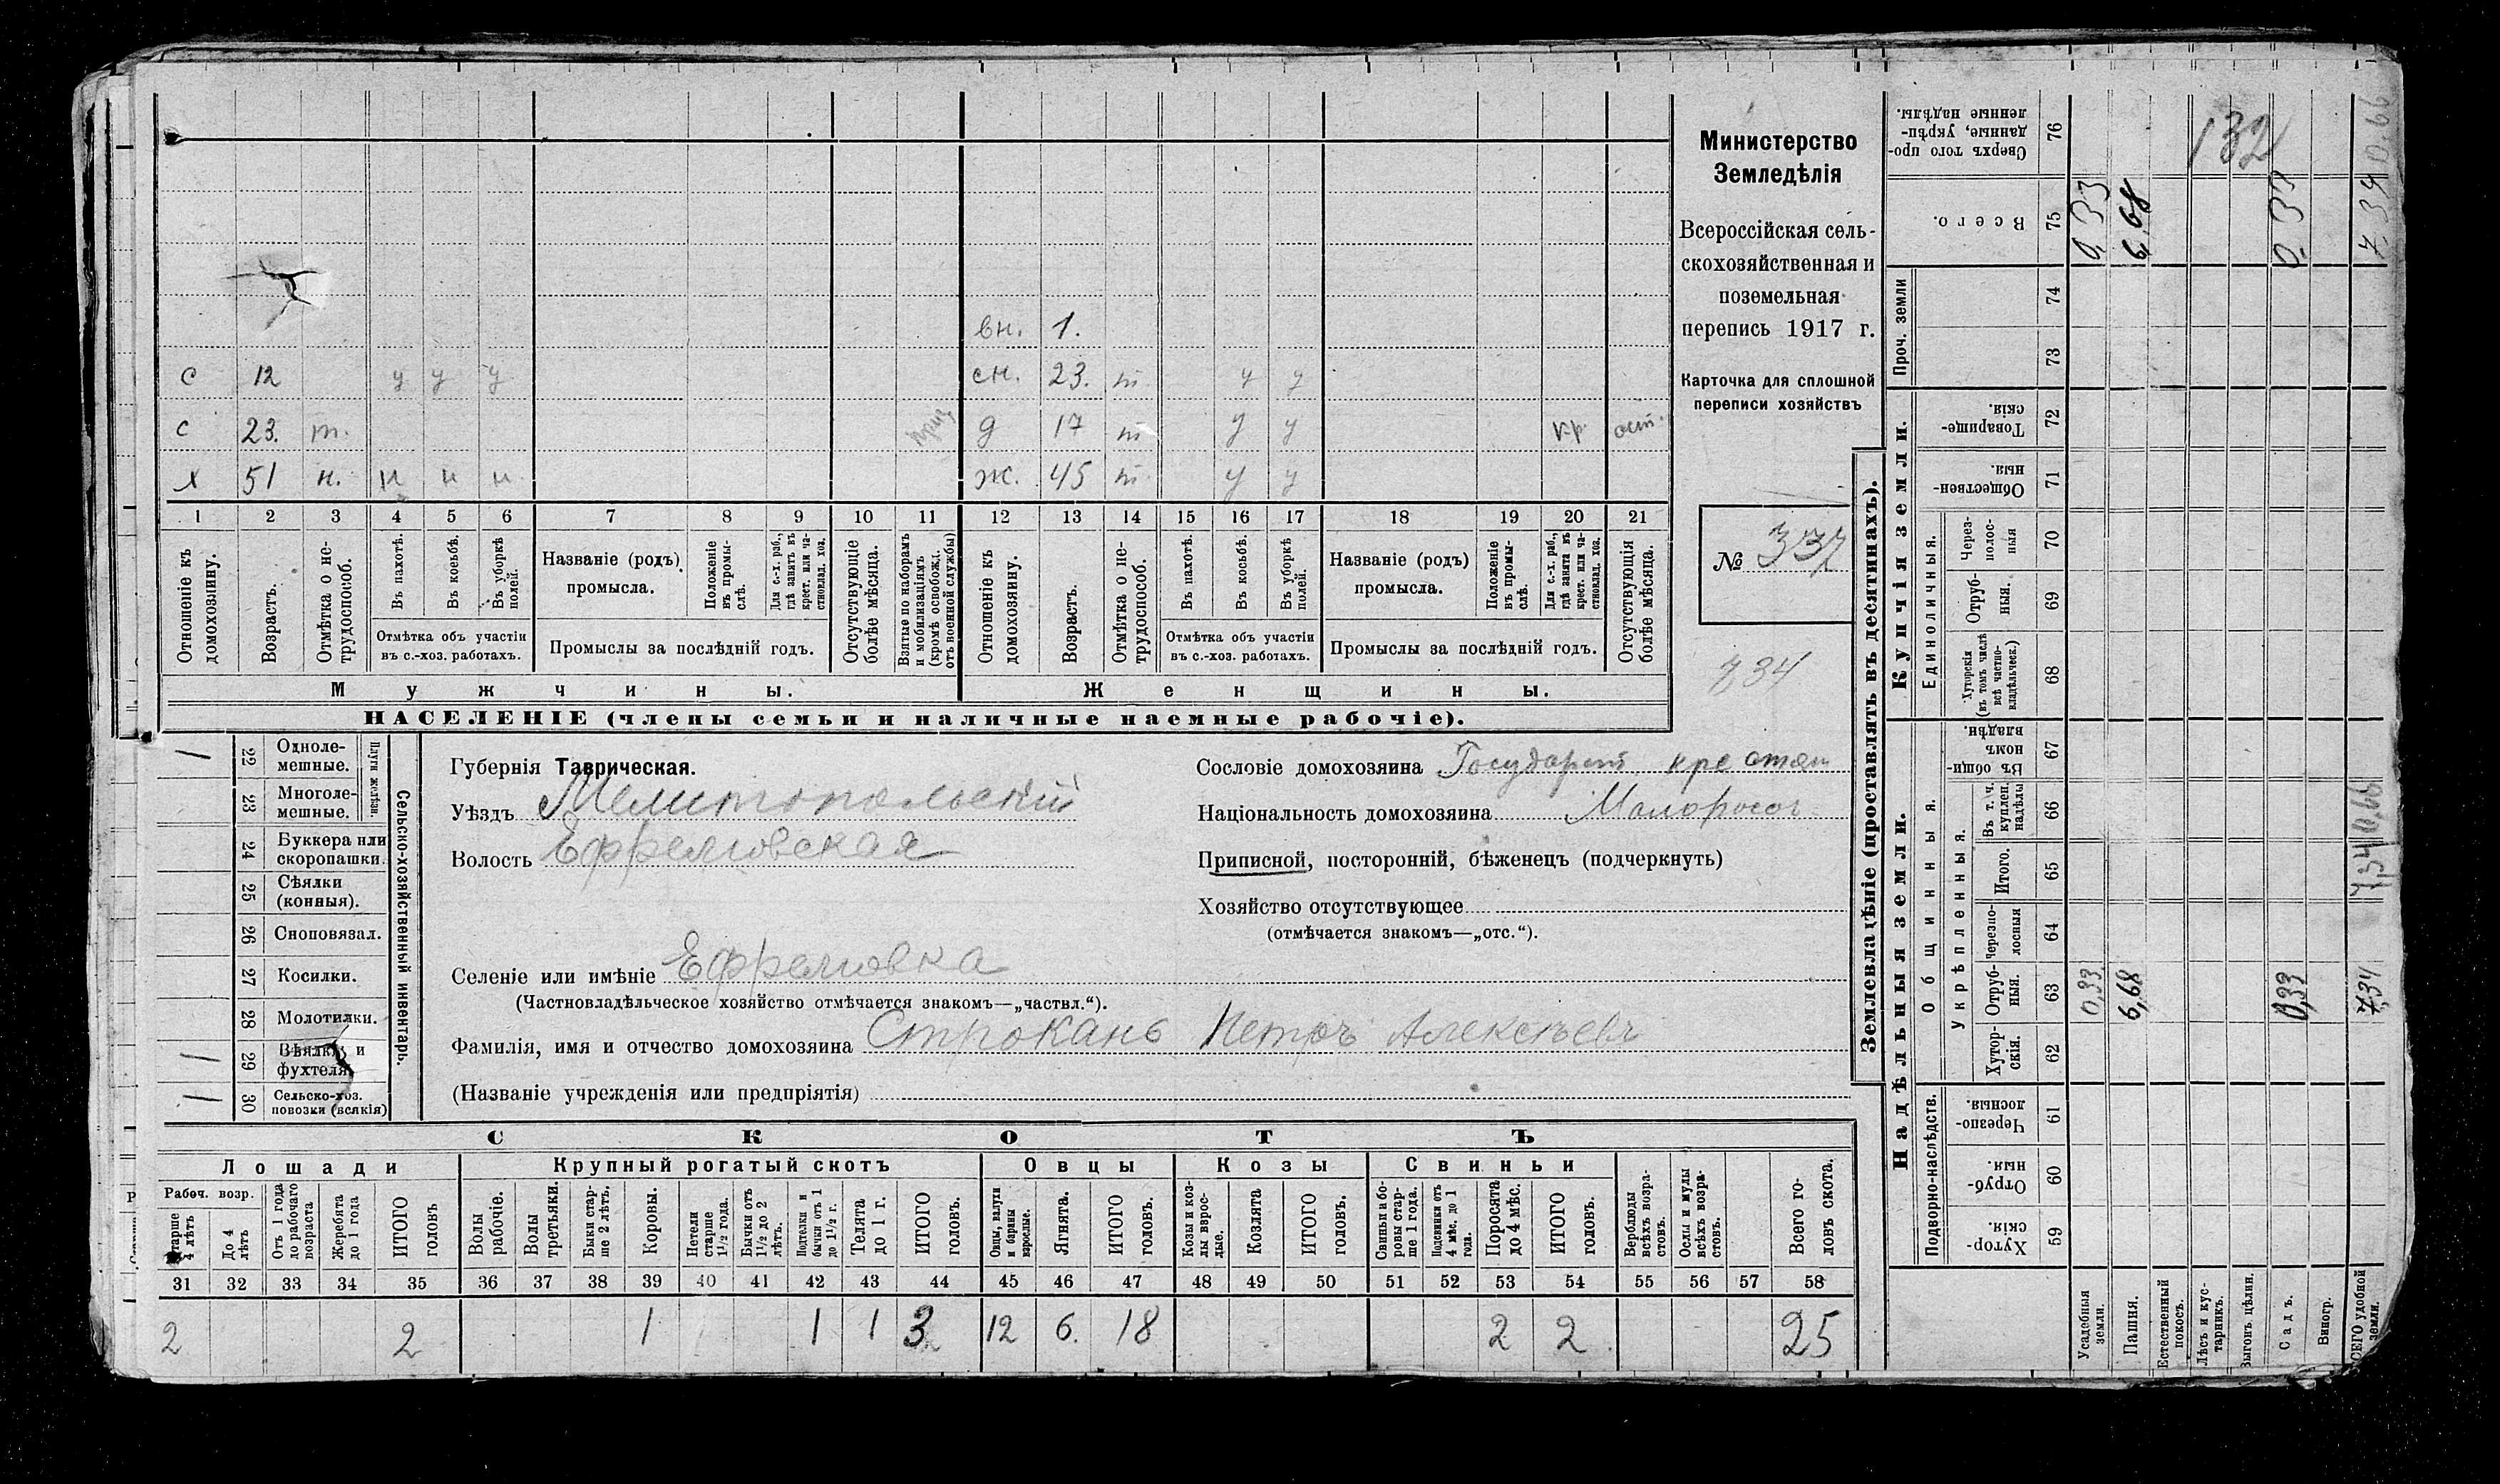 вн. 1.
с 12 у у у сн. 23. т у у
с 23. т. приз. д 17 т у у кр. ост.
х 51 н. н н н ж. 45 т у у
1 2 3 4 5 6 7 8 9 10 11 12 13 14 15 16 17 18 19 20 21
Отношеніе къ домохозяину.
Возрастъ.
Отмѣтка о не-трудоспособ.
Въ пахотѣ.
Въ косьбѣ.
Въ уборкѣ полей.
Отмѣтка объ участіи
въ с.-хоз. работахъ.
Названіе (родъ)
промысла.
Положеніе въ промы-слѣ.
Для с.-х. раб., гдѣ занятъ въ крест. или ча-стновлад. хоз.
Промыслы за послѣдній годъ.
Отсутствующіе болѣе мѣсяца.
Взятые по наборамъ и мобилизаціямъ (кромѣ освобожд. отъ военной службы)
Отношеніе къ домохозяину.
Возрастъ.
Отмѣтка о не-трудоспособ.
Въ пахотѣ.
Въ косьбѣ.
Въ уборкѣ полей.
Отмѣтка объ участіи
въ с.-хоз. работахъ.
Названіе (родъ)
промысла.
Положеніе въ промы-слѣ.
Для с.-х. раб., гдѣ занята въ крест. или ча-стновлад. хоз.
Промыслы за послѣдній годъ.
Отсутствующія болѣе мѣсяца.
Мужчины.
Женщины.
НАСЕЛЕНІЕ (члены семьи и наличные наемные рабочіе).
Министерство
Земледѣлія
Всероссійская сель-
скохозяйственная и
поземельная
перепись 1917 г.
Карточка для сплошной
переписи хозяйствъ
№ 337
734
1 22 Одноле-мешные.
23 Многоле-мешные.
Плуги желѣзн.
24 Буккера или скоропашки.
25 Сѣялки (конныя).
26 Сноповязал.
27 Косилки.
28 Молотилки.
1 29 Вѣялки и фухтеля
1 30 Сельско-хоз. повозки (всякія)
Сельско-хозяйственный инвентарь.
Губернія Таврическая.
Уѣздъ Мелитопольскій
Волость Ефремовская
Селеніе или имѣніе Ефремовка
(Частновладѣльческое хозяйство отмѣчается знакомъ—„частвл.“).
Фамилія, имя и отчество домохозяина Строкань Петръ Алексѣевъ
(Названіе учрежденія или предпріятія)
Сословіе домохозяина Государст. крестян
Національность домохозяина Малоросс
Приписной, посторонній, бѣженецъ (подчеркнуть)
Хозяйство отсутствующее
(отмѣчается знакомъ—„отс.“).
СКОТЪ
Лошади Крупный рогатый скотъ Овцы Козы Свиньи
Рабоч. возр.
Старше 4 лѣтъ
До 4 лѣтъ
Отъ 1 года до рабочаго возраста
Жеребята до 1 года
ИТОГО головъ
Волы рабочіе.
Волы третьяки.
Быки стар-ше 2 лѣтъ.
Коровы.
Нетели старше 1 1/2 года.
Бычки отъ 1 1/2 до 2 лѣтъ.
Подтелки и бычки отъ 1 до 1 1/2 г.
Телята до 1 г.
ИТОГО головъ.
Овцы, валухи и бараны взрослые.
Ягнята.
ИТОГО головъ.
Козы и коз-лы взрос-лые.
Козлята
ИТОГО головъ.
Свиньи и бо-ровы стар-ше 1 года.
Подсвинки отъ 4 мѣс. до 1 года.
Поросята до 4 мѣс.
ИТОГО головъ.
Верблюды всѣхъ возра-стовъ.
Ослы и мулы всѣхъ возра-стовъ.
Всего го-ловъ скота.
31 32 33 34 35 36 37 38 39 40 41 42 43 44 45 46 47 48 49 50 51 52 53 54 55 56 57 58
2 2 1 1 1 3 12 6. 18 2 2 25
Землевладѣніе (проставлять въ десятинахъ).
Купчія земли.
Надѣльныя земли.
Проч. земли
Единоличныя.
Общинныя.
Укрѣпленныя.
Подворно-наслѣдств.
Сверхъ того про-данные, укрѣп-ленные надѣлы. 76 132
Всего. 75 0,33 6,68 0,33 7,34 0,66
74
73
Товарище-скія. 72
Обществен-ныя. 71
Через-полос-ныя 70
Отруб-ныя. 69
Хуторскія (въ томъ числѣ всѣ частно-владѣльческ.) 68
Въ общи-номъ владѣн. 67
Въ т. ч. куплен. надѣлы 66
Итого. 65 7,34 0,66
Черезпо-лосныя 64
Отруб-ныя. 63 0,33 6,68 0,33 7,34
Хутор-скія. 62
Черезпо-лосныя. 61
Отруб-ныя. 60
Хутор-скія. 59
Усадебныя земли.
Пашня.
Естественный покосъ.
Лѣсъ и кус-тарникъ.
Выгонъ, цѣлин.
Садъ.
Виногр.
ВСЕГО удобной земли.